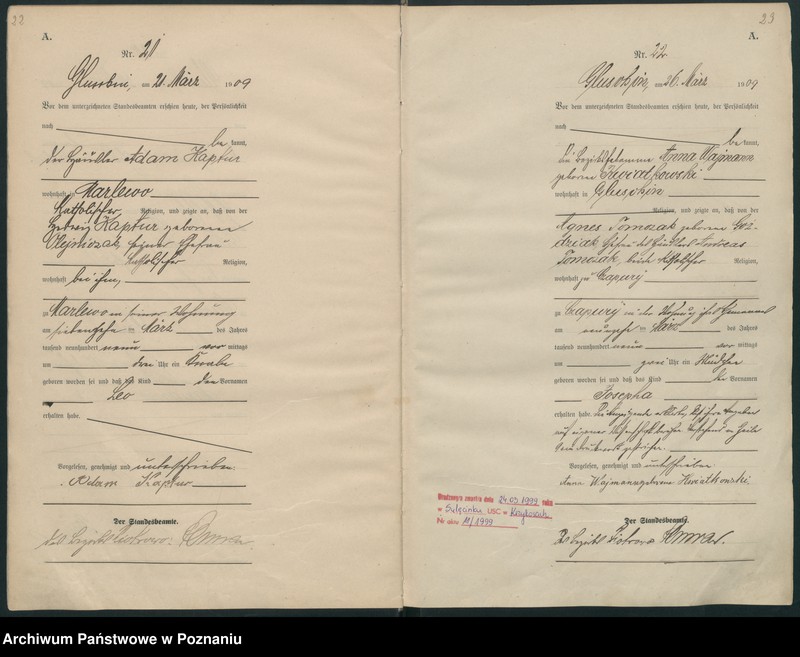 22
A.
Nr. 21
Glusschin, am 21. März 1909
Vor dem unterzeichneten Standesbeamten erschien heute, der Persönlichkeit
nach
be kannt,
der Häusler Adam Kaptur
wohnhaft in Marlewo
Katholischer Religion, und zeigte an, daß von der
Hedwig Kaptur geborenen
Olejniczak, seiner Ehefrau
katholischer Religion,
wohnhaft bei ihm,
zu Marlewo in seiner Wohnung
am siebenzehn ten März des Jahres
tausend neunhundert neun vor mittags
um drei Uhr ein Knabe
geboren worden sei und daß das Kind den Vornamen
Leo
erhalten habe.
Vorgelesen, genehmigt und unterschrieben.
Adam Kaptur
Der Standesbeamte.
23
A.
Nr. 22
am 26. März 1909
Vor dem unterzeichneten Standesbeamten erschien heute, der Persönlichkeit
nach
be kannt,
die Bezirkshebamme Anna Wajmann
geborene Kwiatkowski
wohnhaft in
Religion, und zeigte an, daß von der
Agnes Tomczak geborene
Ehefrau des Häuslers Andreas
Tomczak, beide katholischer Religion,
wohnhaft zu Czapury
zu Czapury in der Wohnung ihres Ehemannes
am März des Jahres
tausend neunhundert neun vor mittags
um zwei Uhr ein Mädchen
geboren worden sei und daß das Kind den Vornamen
Josepha
erhalten habe. Die
Vorgelesen, genehmigt und unterschrieben.
Anna Wajmann geborene Kwiatkowski.
24.03 1999 roku
w Sulęcinku USC w
Nr aktu 11/1999
Der Standesbeamte.
Archiwum Państwowe w Poznaniu